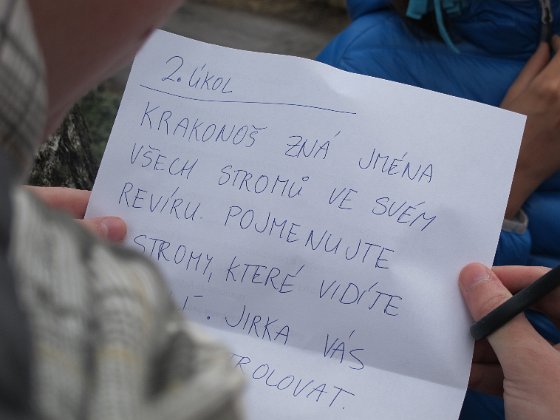 2. ÚKOL
KRAKONOŠ ZNÁ JMÉNA
VŠECH STROMŮ VE SVÉM
REVÍRU. POJMENUJTE
STROMY, KTERÉ VIDÍTE
JIRKA VÁS